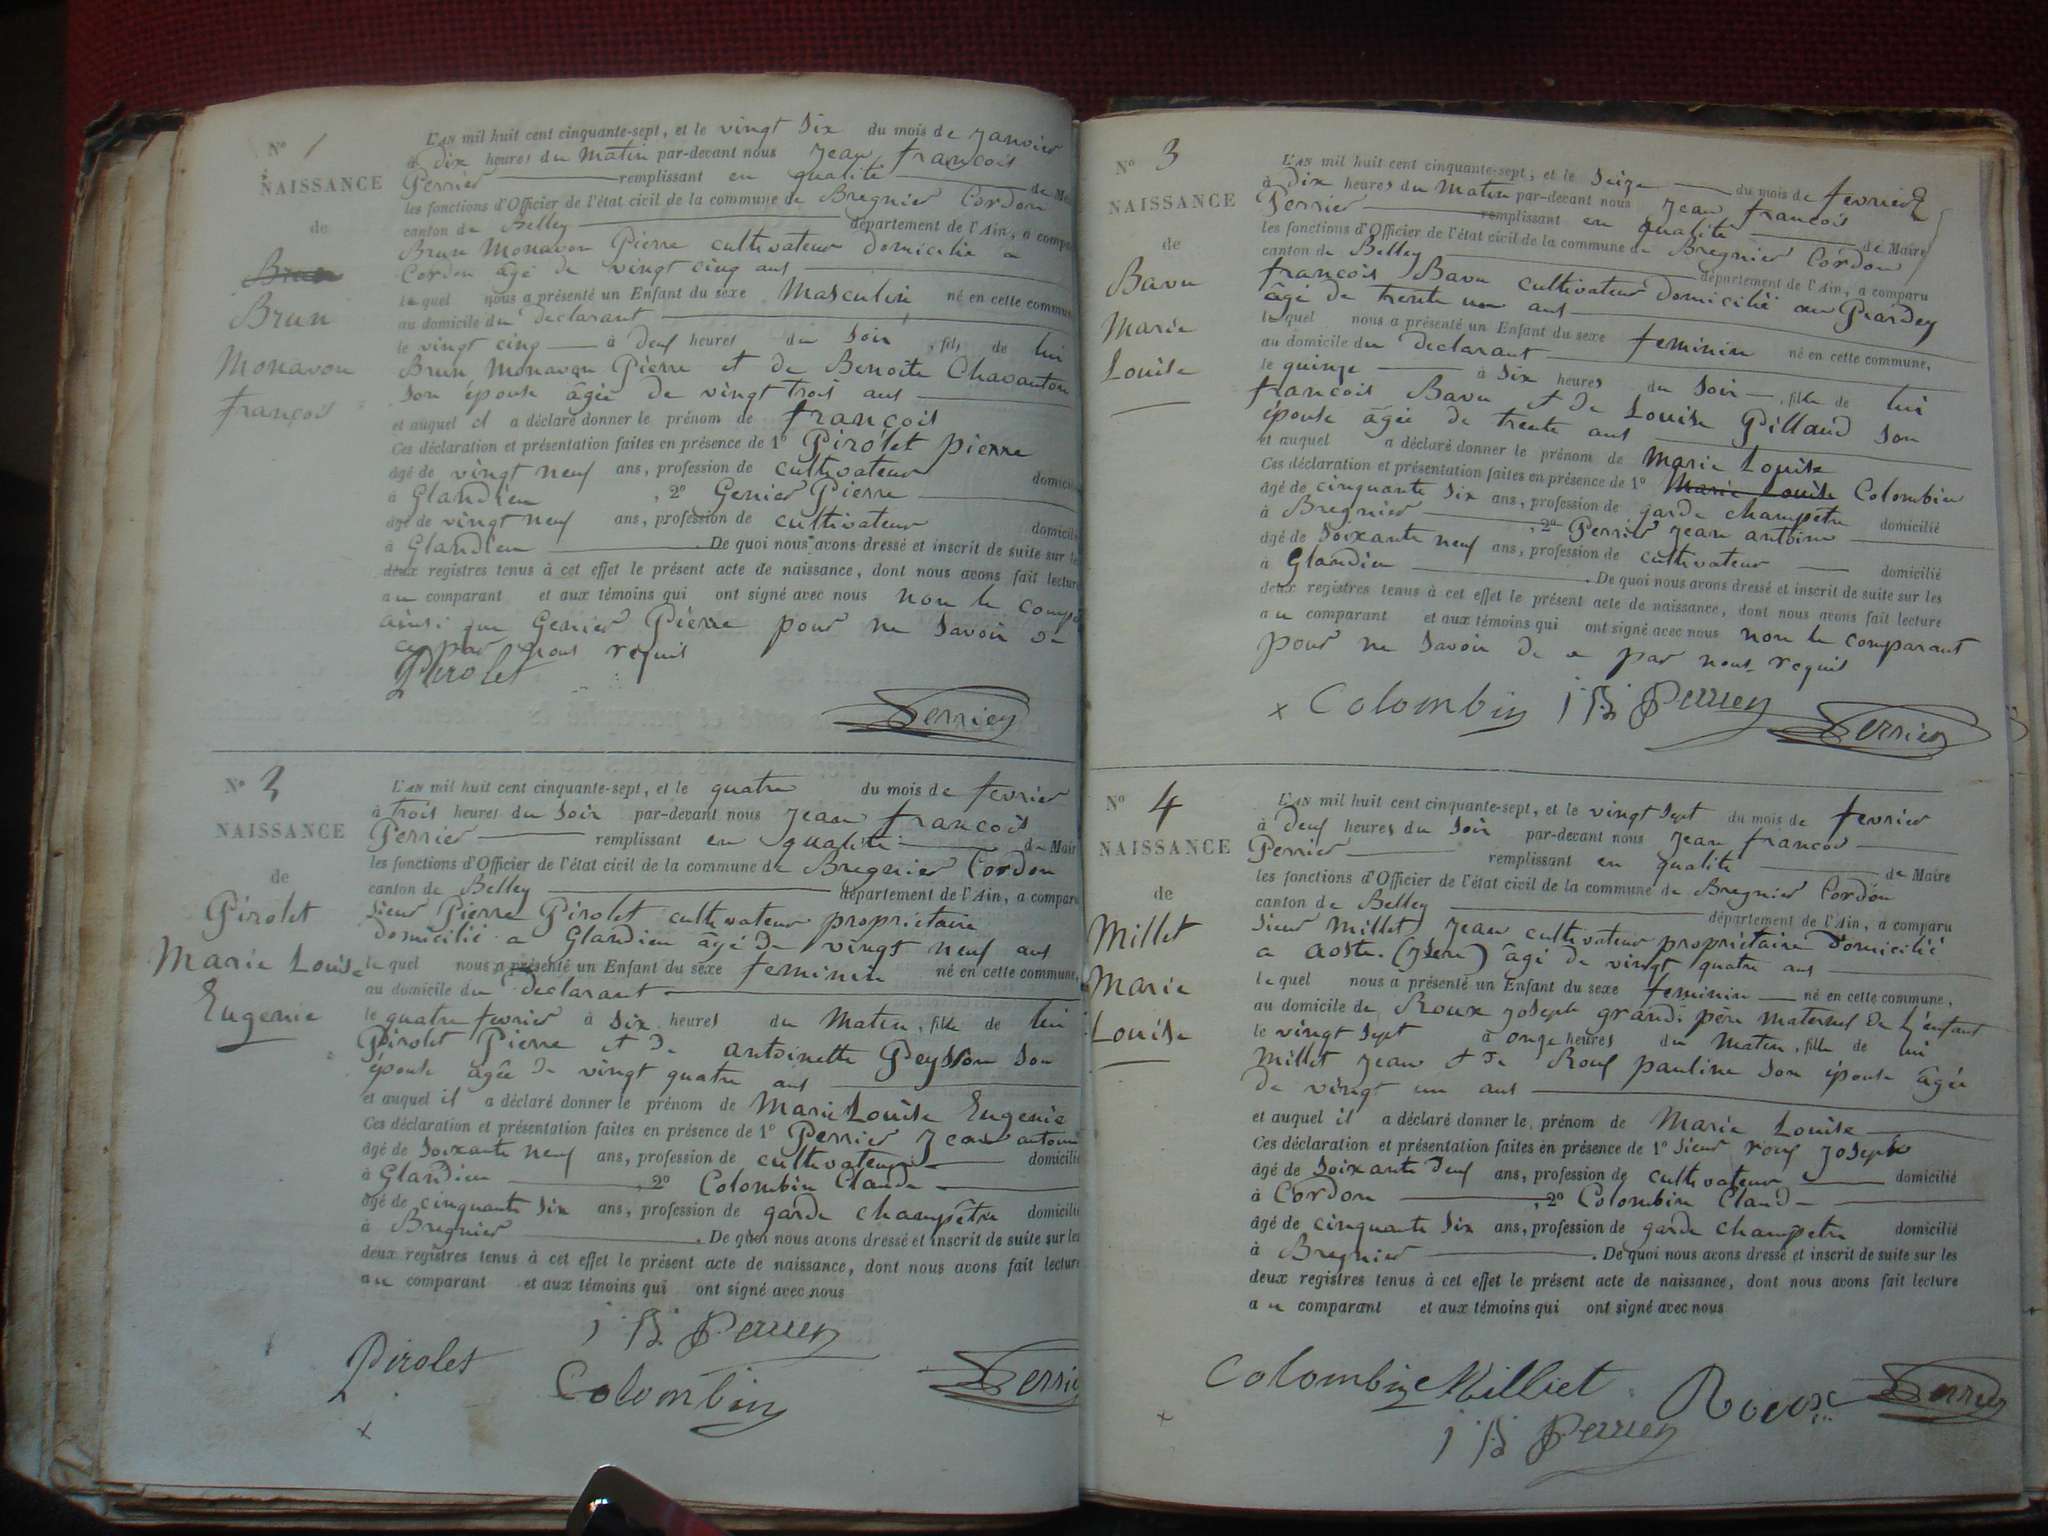 N° 1
NAISSANCE
de
Brun
Brun
Monavon
françois
L'AN mil huit cent cinquante-sept, et le vingt Six du mois de Janvier
à dix heures du Matin par-devant nous Jean françois
Perrier remplissant en qualité de Mai
les fonctions d'Officier de l'état civil de la commune de Bregnier Cordon
canton de Belley département de l'Ain, a compa
Brun Monavon Pierre cultivateur domicilié a
Cordon âgé de vingt cinq ans
lequel nous a présenté un Enfant du sexe Masculin né en cette commune
au domicile du declarant
le vingt cinq à deux heures du Soir, fils de lui
Brun Monavon Pierre et de Benoite Chavanton
Son épouse âgée de vingt trois ans
et auquel il a déclaré donner le prénom de françois
Ces déclaration et présentation faites en présence de 1° Pirolet pierre
âgé de vingt neuf ans, profession de cultivateur domicilié
à Glandieu, 2° Genier Pierre
âgé de vingt neuf ans, profession de cultivateur domicilié
à Glandieu. De quoi nous avons dressé et inscrit de suite sur les
deux registres tenus à cet effet le présent acte de naissance, dont nous avons fait lecture
au comparant et aux témoins qui ont signé avec nous non le comp
ainsi que Genier Pierre pour ne Savoir de
ce par nous requis
Pirolet
Perrier
N° 2
NAISSANCE
de
Pirolet
Marie Louise
Eugenie
L'AN mil huit cent cinquante-sept, et le quatre du mois de fevrier
à trois heures du Soir par-devant nous Jean françois
Perrier remplissant en qualité de Mair
les fonctions d'Officier de l'état civil de la commune de Bregnier Cordon
canton de Belley département de l'Ain, a comparu
Sieur Pierre Pirolet cultivateur propriétaire
domicilié a Glandieu âgé de vingt neuf ans
lequel nous a présenté un Enfant du sexe feminin né en cette commune,
au domicile du declarant
le quatre fevrier à Six heures du Matin, fille de lui
Pirolet Pierre et de antoinette Peysson Son
épouse âgée de vingt quatre ans
et auquel il a déclaré donner le prénom de Marie Louise Eugenie
Ces déclaration et présentation faites en présence de 1° Perrier Jean antoine
âgé de Soixante neuf ans, profession de cultivateur domicilié
à Glandieu, 2° Colombin Claude
âgé de cinquante Six ans, profession de garde champêtre domicilié
à Bregnier. De quoi nous avons dressé et inscrit de suite sur les
deux registres tenus à cet effet le présent acte de naissance, dont nous avons fait lecture
au comparant et aux témoins qui ont signé avec nous
Pirolet Colombin Perrier
N° 3
NAISSANCE
de
Bavu
Marie
Louise
L'AN mil huit cent cinquante-sept, et le Seize du mois de fevrier
à dix heures du Matin par-devant nous Jean françois
Perrier remplissant en qualité de Maire
les fonctions d'Officier de l'état civil de la commune de Bregnier Cordon
canton de Belley département de l'Ain, a comparu
françois Bavu cultivateur domicilié au
âgé de trente un ans
lequel nous a présenté un Enfant du sexe feminin né en cette commune,
au domicile du declarant
le quinze à Six heures du Soir, fille de lui
françois Bavu et de Louise Pillaud Son
épouse âgée de trente ans
et auquel a déclaré donner le prénom de Marie Louise
Ces déclaration et présentation faites en présence de 1° Marie Louise Colombin
âgé de cinquante Six ans, profession de garde champêtre domicilié
à Bregnier, 2° Perrier Jean antoine
âgé de Soixante neuf ans, profession de cultivateur domicilié
à Glandieu. De quoi nous avons dressé et inscrit de suite sur les
deux registres tenus à cet effet le présent acte de naissance, dont nous avons fait lecture
au comparant et aux témoins qui ont signé avec nous non le comparant
pour ne Savoir de ce par nous requis
x Colombin Perrier Perrier
N° 4
NAISSANCE
de
Millet
Marie
Louise
L'AN mil huit cent cinquante-sept, et le vingt Sept du mois de fevrier
à deux heures du Soir par-devant nous Jean françois
Perrier remplissant en qualité de Maire
les fonctions d'Officier de l'état civil de la commune de Bregnier Cordon
canton de Belley département de l'Ain, a comparu
Sieur Millet Jean cultivateur propriétaire Domicilié
a aoste (Isere) âgé de vingt quatre ans
lequel nous a présenté un Enfant du sexe feminin né en cette commune,
au domicile de Roux Joseph grand père maternel de l'enfant
le vingt Sept à onze heures du Matin, fille de lui
Millet Jean et de Roux pauline Son épouse âgée
de vingt un ans
et auquel il a déclaré donner le prénom de Marie Louise
Ces déclaration et présentation faites en présence de 1° Sieur roux Joseph
âgé de Soixante deux ans, profession de cultivateur domicilié
à Cordon, 2° Colombin Claud
âgé de cinquante Six ans, profession de garde champetre domicilié
à Bregnier. De quoi nous avons dressé et inscrit de suite sur les
deux registres tenus à cet effet le présent acte de naissance, dont nous avons fait lecture
au comparant et aux témoins qui ont signé avec nous
Colombin Milliet Roux Perrier
x Perrier